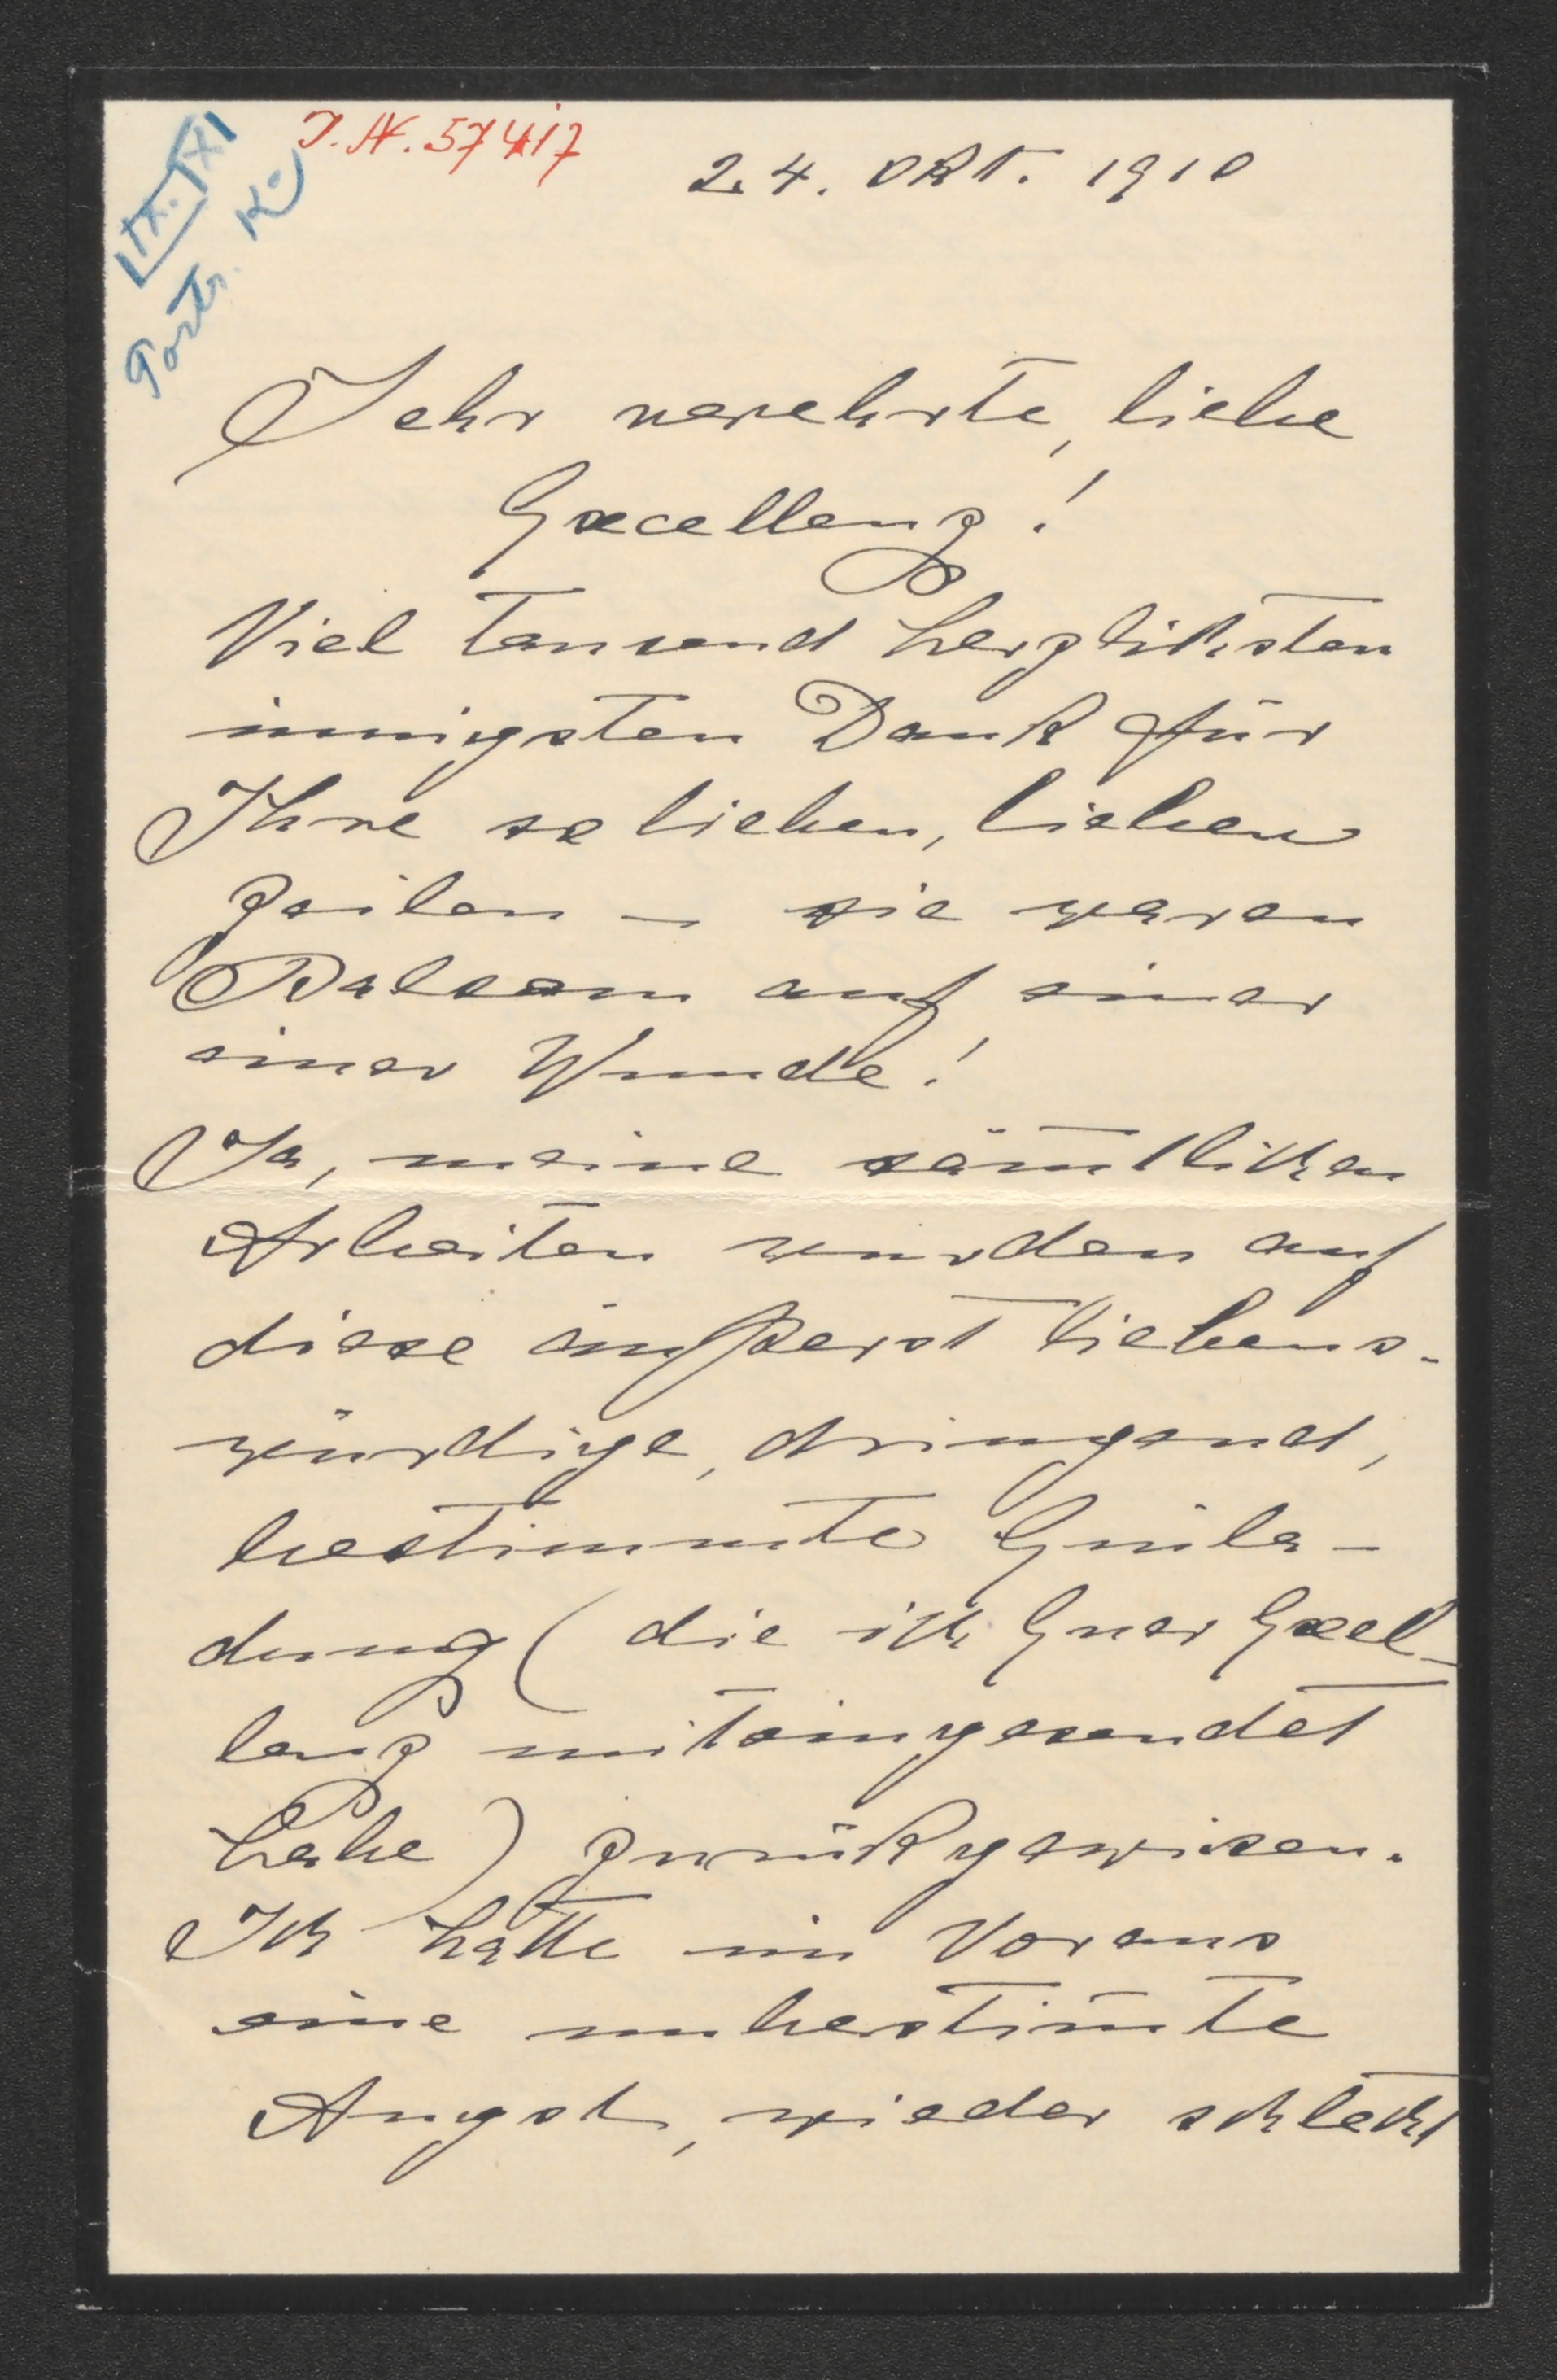 J.N. 57417
24. Okt. 1910
Sehr verehrte, liebe
Excellenz!
Viel tausend herzlichsten
innigsten Dank für
Ihre so lieben, lieben
Zeilen – sie waren
Balsam auf einer
einer Wunde!
Ja, meine säm̄tlichen
Arbeiten wurden auf
diese äußerst liebens-
würdige, dringend,
bestimmte Einla-
dung (die ich Euer Excel-
lenz miteingesendet
habe) zurükgewisen.
Ich hatte im Voraus
eine unbestim̄te
Angst, wieder schlecht